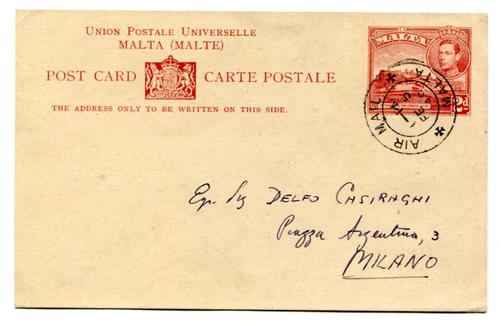 UNION POSTALE UNIVERSELLE
MALTA (MALTE)
POST CARD CARTE POSTALE
THE ADDRESS ONLY TO BE WRITTEN ON THIS SIDE.
AIR MAIL
MALTA
Eg. Sig DELFO CASIRAGHI
Piazza Argentina, 3
MILANO